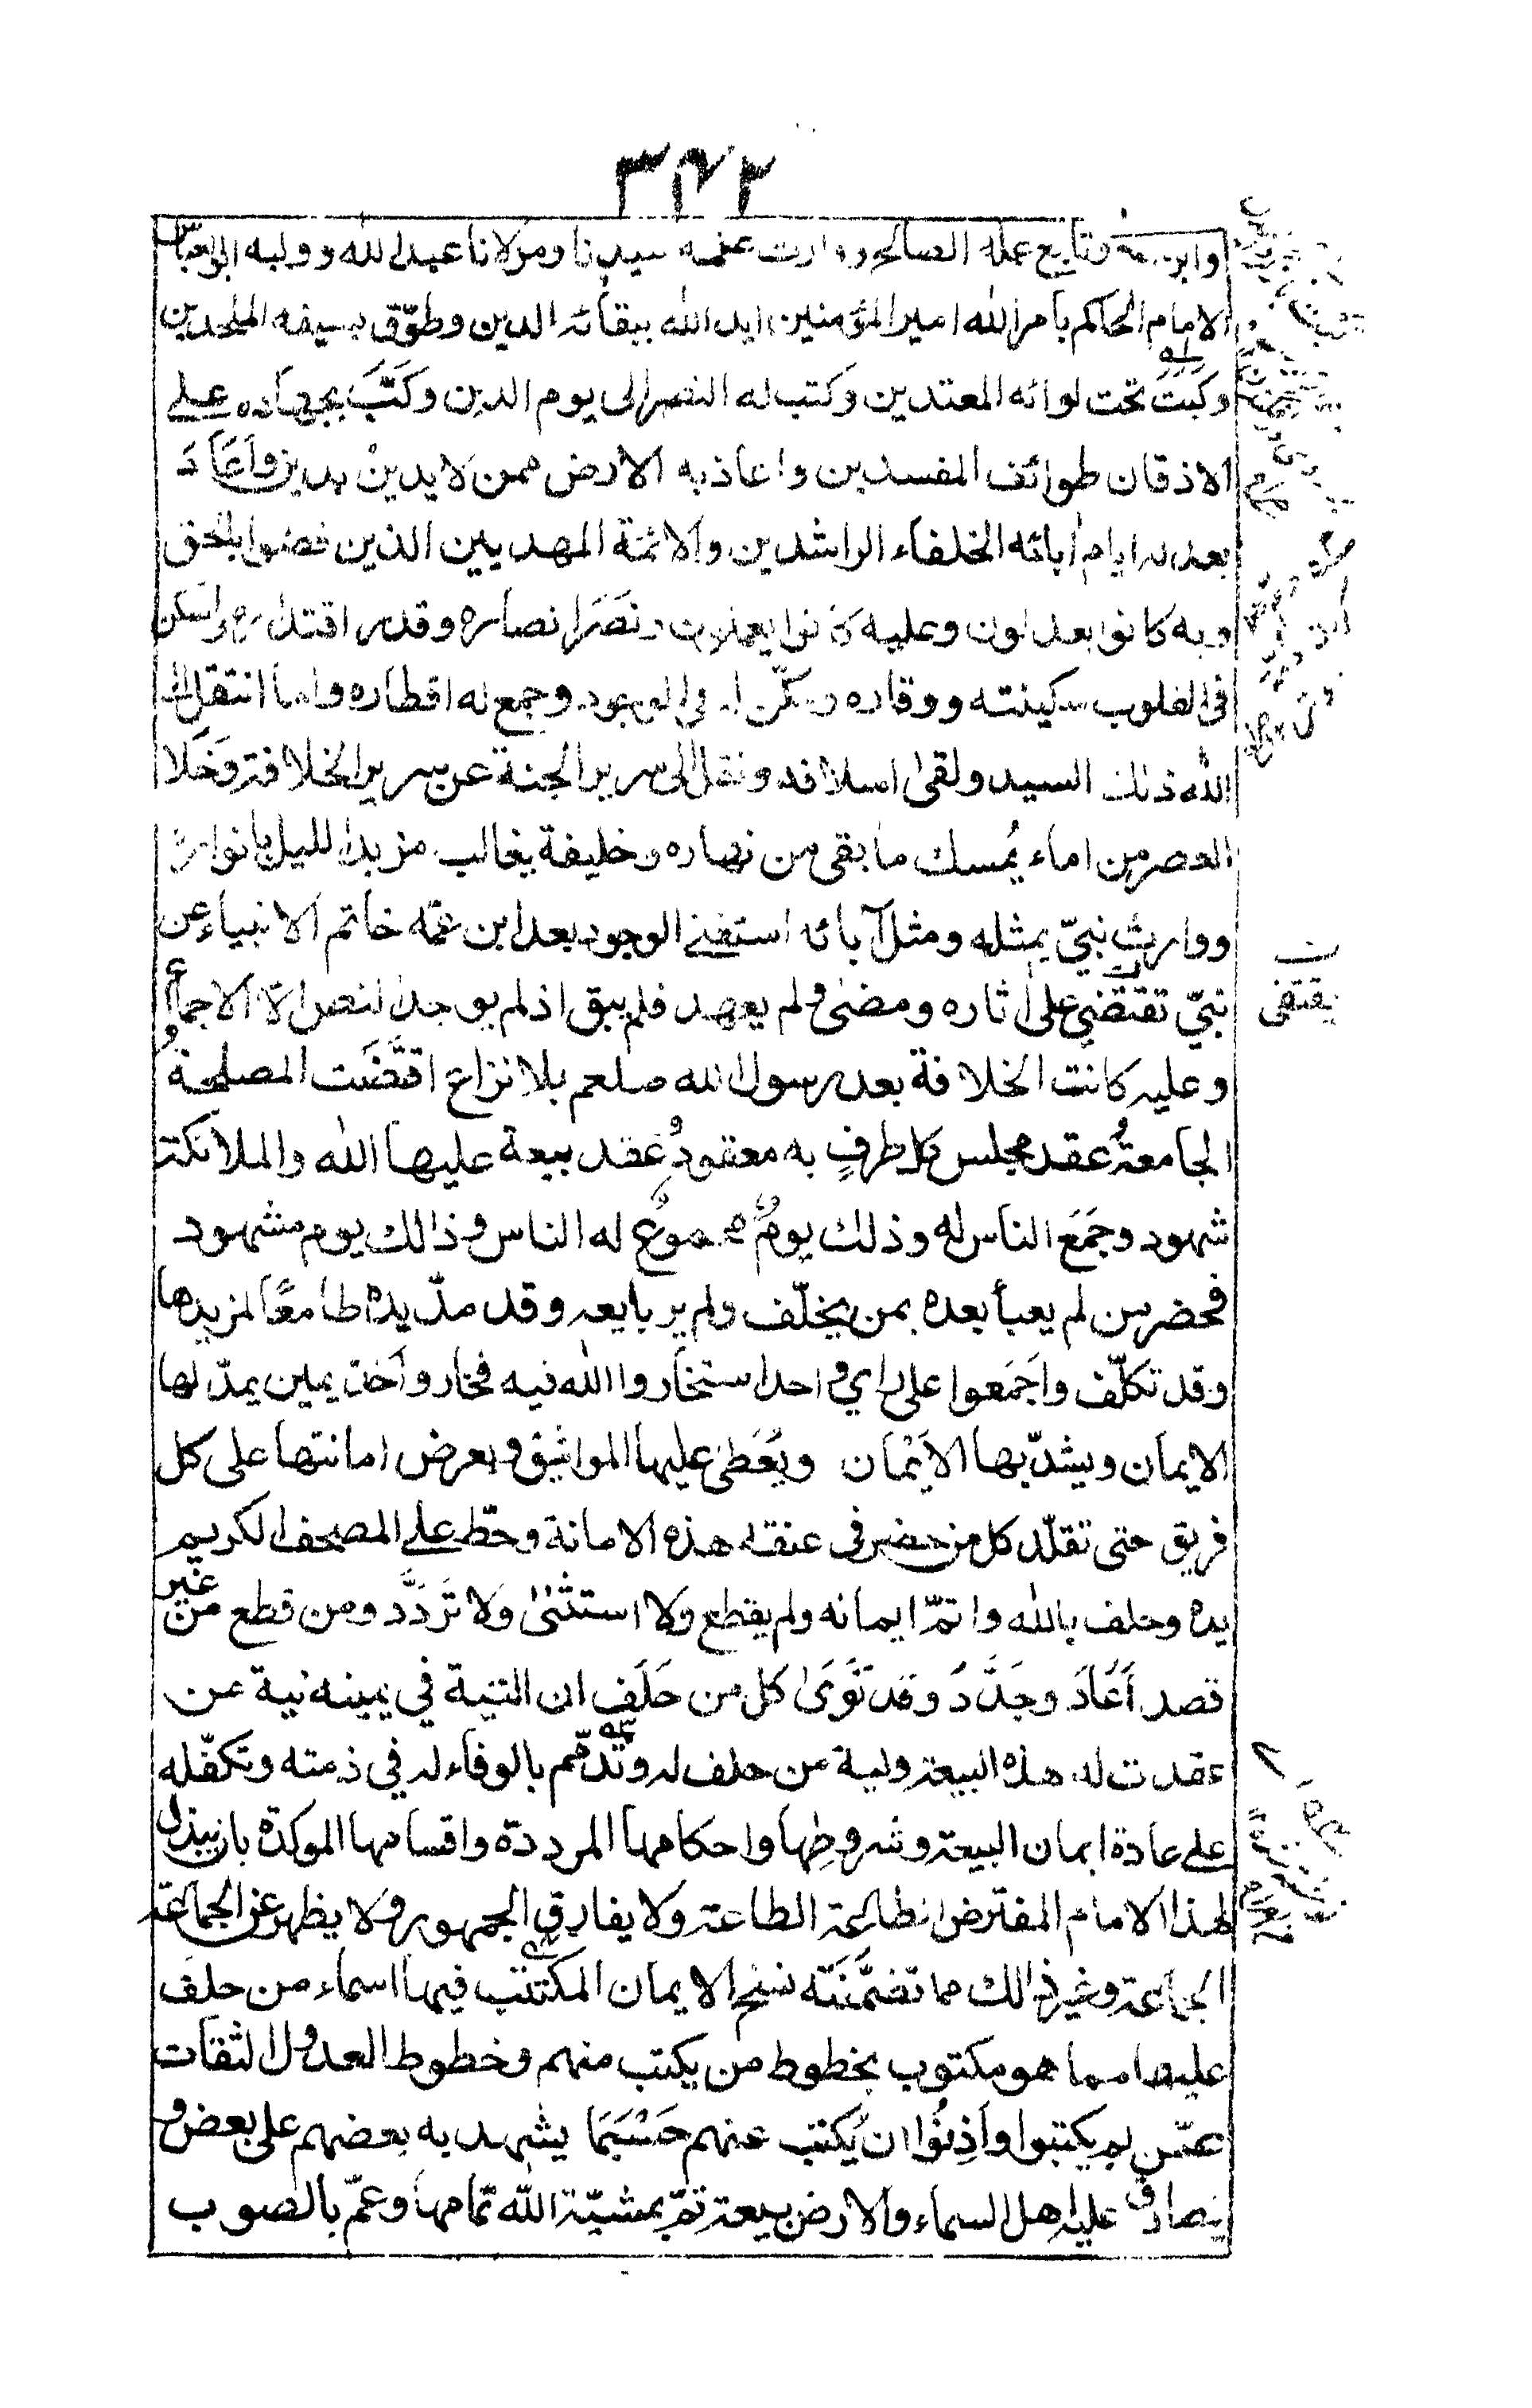 ٣٧٢
وتابع عمله الصالح ووارث علمه سيدنا ومولانا عبد الله ووليه ابو العباس
الامام الحاكم بامر الله امير المؤمنين ايد الله ببقائه الدين وطوّق بسيفه الملحدين
وكَبَتَ تحت لوائه المعتدين وكتب له النصر الى يوم الدين وكَبَّ بجهاده على
الاذقان طوائف المفسدين واعاذ به الارض ممن لا يدين بدين واَعَادَ
بعدله ايام اٰبائه الخلفاء الراشدين والائمة المهديين الذين قضوا بالحق
وبه كانوا يعدلون وعليه كانوا يعملون ونَصَرَ انصاره وقدر اقتداره واسكن
فى القلوب سكينته ووقاره ومكّن له فى الوجود وجمع له اقطاره ولما انتقل الى
الله ذلك السيد ولقى اسلافه ونقل الى سرير الجنة عن سرير الخلافة وخَلا
العصر من امام يُمسك ما بقى من نهاره وخليفة يغالب مزبد الليل بانواره
ووارث نبيّ بمثله ومثل آبائه استغنى الوجود بعد ابن عمّه خاتم الانبياء عن
نبيّ تقتضي على اٰثاره ومضى ولم يعهد فلم يبق اذ لم يوجد النص الا الاجماع
وعليه كانت الخلافة بعد رسول الله صلعم بلا نزاع اقتَضَت المصلحةُ
الجامعةُ عقد مجلس كل طرفٍ به معقودُ وعَقد بيعة عليها الله والملائكة
شهود وجَمَعَ الناس له وذلك يومٌ مجموعٌ له الناس وذالك يوم مشهود
فحضر من لم يعبأ بعده بمن تخلّف ولم ير بايعه وقد مدّ يده طامعًا لمزيدها
وقد تكلّف واَجمَعوا على راي واحد استخاروا الله فيه فخار واَخذ يمين يمدّ لها
الايمان ويشدّ بها الاَيْمان ويُعطى عليها المواثيق ويعرض امانتها على كل
فريق حتى تقلّد كل من حضر فى عنقه هذه الامانة وحطّ على المصحف الكريم
يده وحلف بالله واتمّ ايمانه ولم يقطع ولا استثنىٰ ولا تَردَّد ومن قطع من غير
قصد اَعَادَ وجَدَّدَ وقد نَوَىٰ كل من حَلَف ان النية في يمينه نية من
عقدت له هذه البيعة ونية من حلف له وتذمّم بالوفاء له في ذمته وتكفّله
على عادة ايمان البيعة وشروطها واحكامها المرددة واقسامها الموكدة بان يبذل
لهذا الامام المفترض الطاعة الطاعة ولا يفارق الجمهور ولا يظهر عن الجماعة
الجماعة وغير ذالك مما تضمَّنَته نسخ الايمان المكتتب فيها اسماء من حلف
عليها مما هو مكتوب بخطوط من يكتب منهم وخطوط العدول الثقات
عمّن لم يكتبوا واَذِنُوا ان يُكتب عنهم حَسْبَمَا يشهد به بعضهم على بعض و
يتصادق عليه اهل السماء والارض بيعة تمّ بمشيّة الله تمامها وعمّ بالصوب
ن
يقتفى